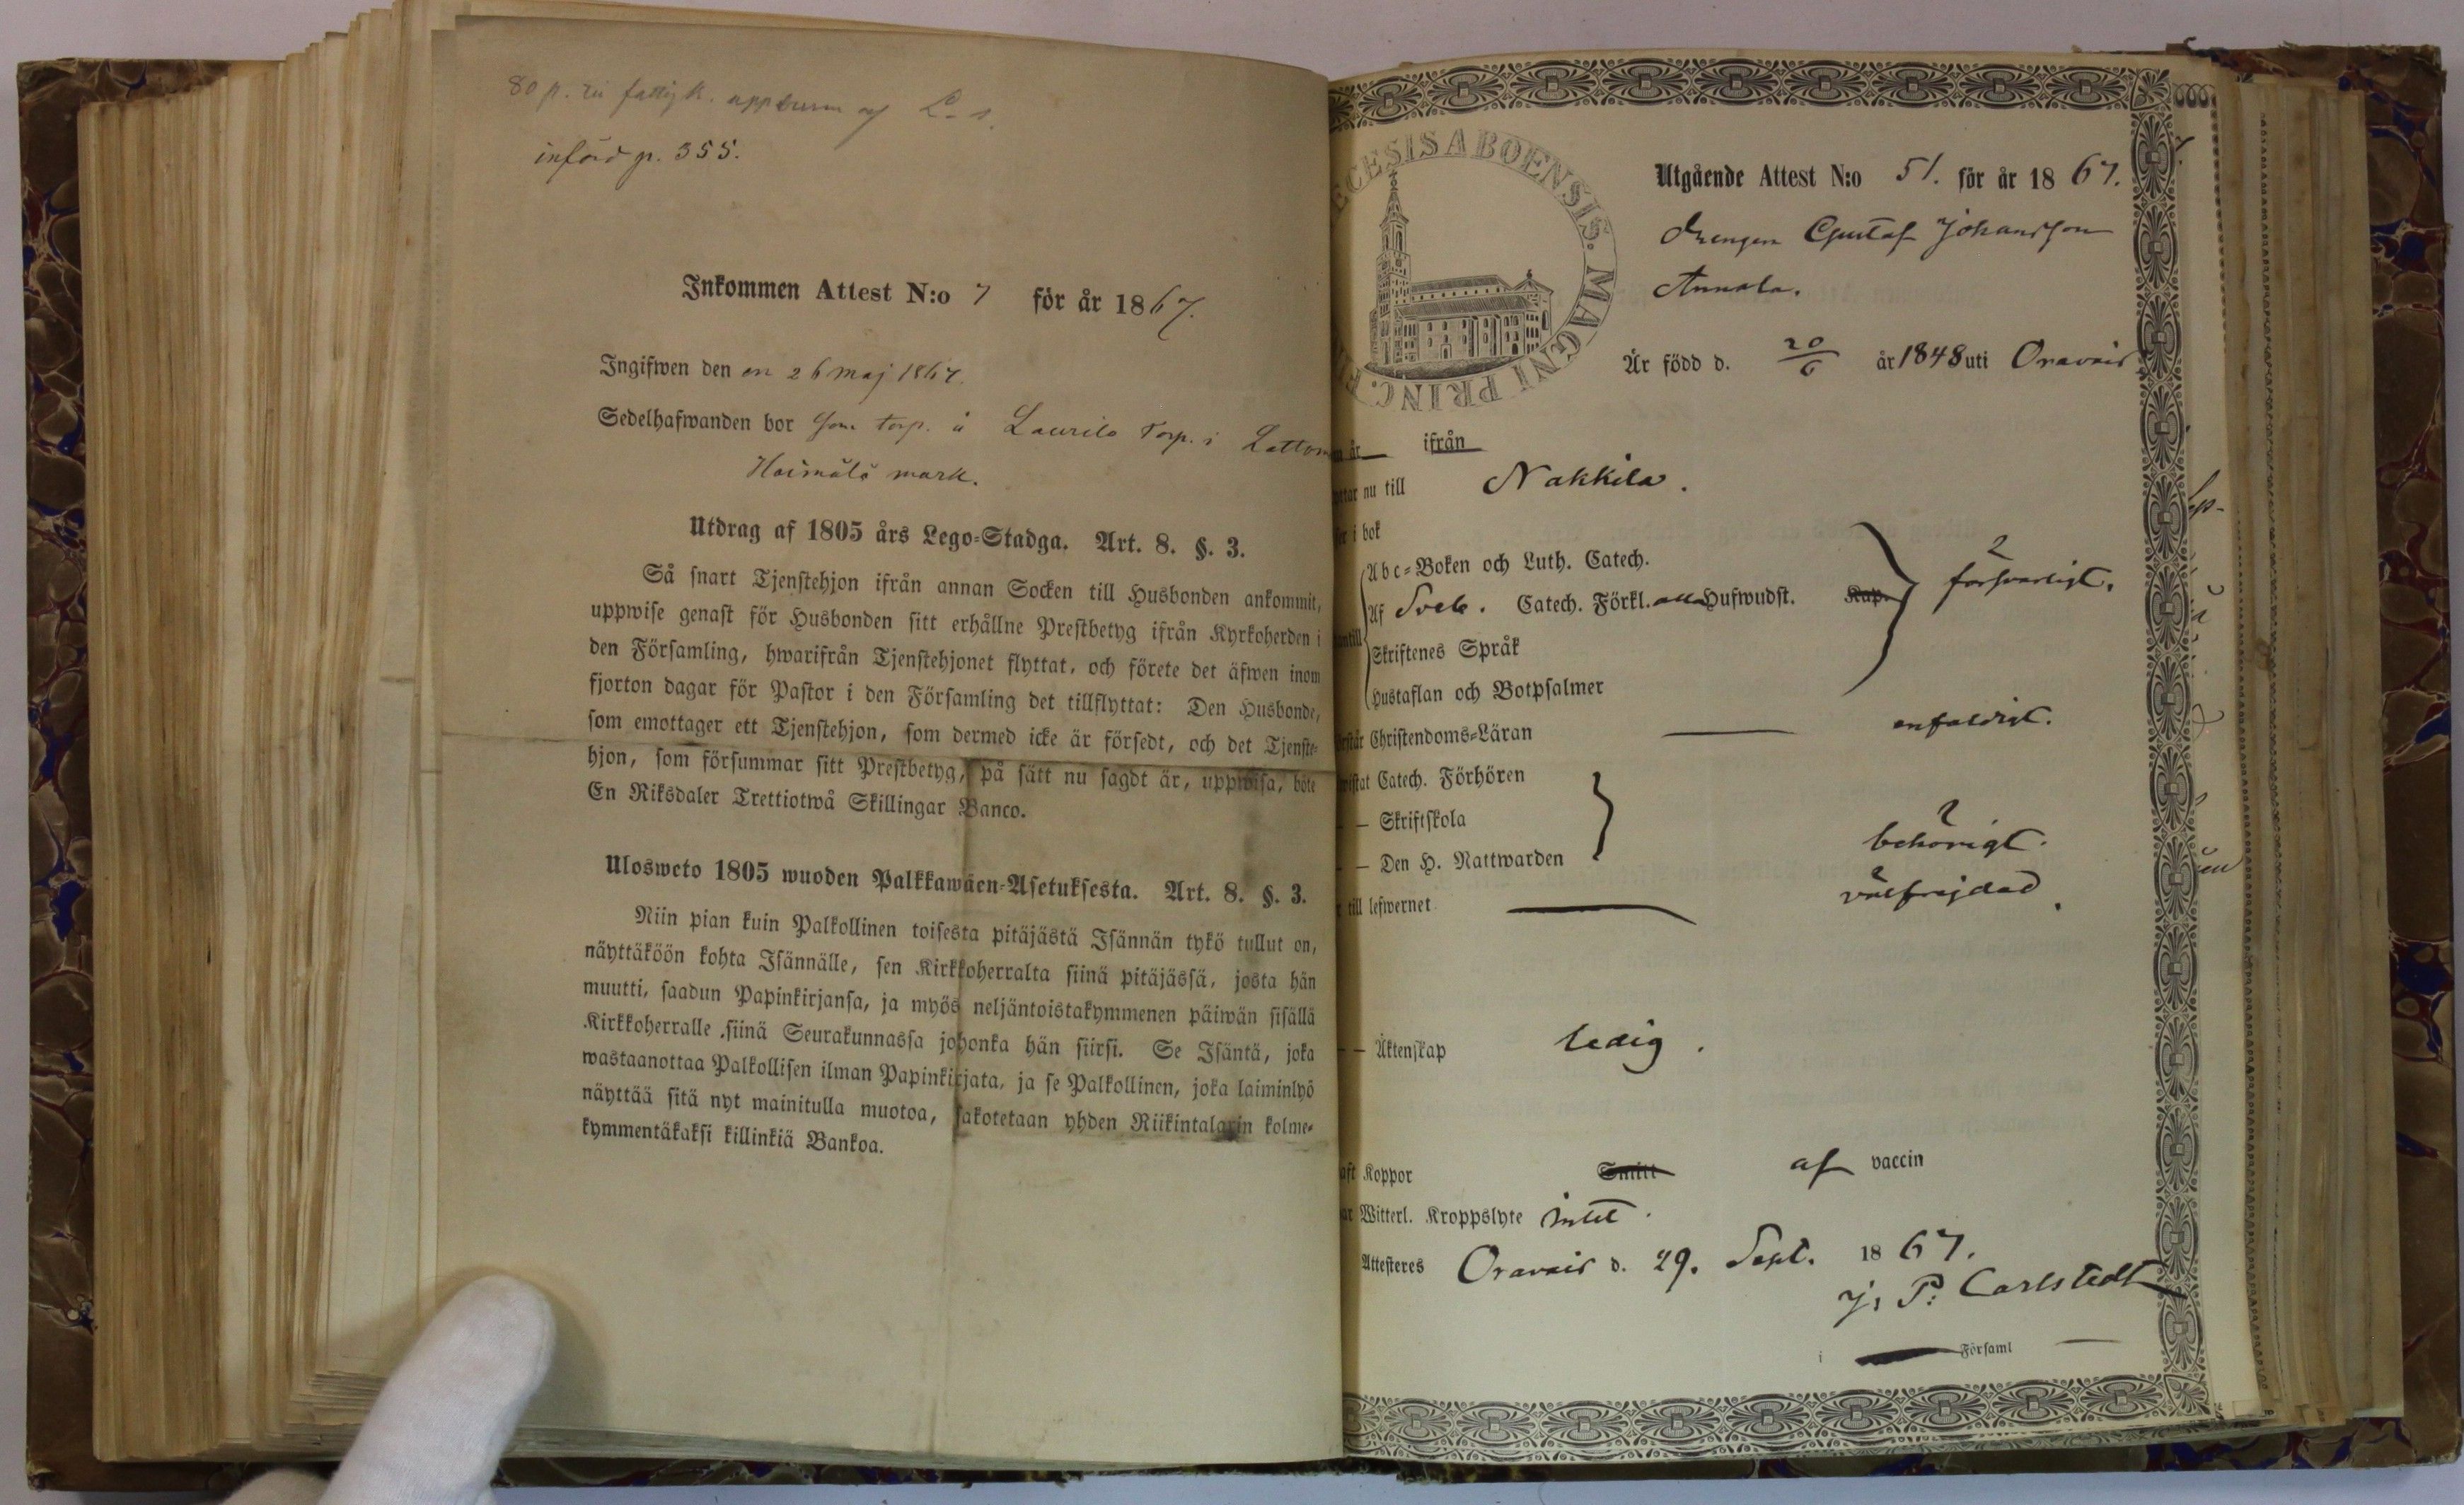 80 p. till fattigk. uppburn af L-s.
införd p. 355.
Inkommen Attest N:o 7 för år 1867.
Ingifwen den en 26 maj 1867.
Sedelhafwanden bor som torp. å Laurila torp. i
Hoimälä mark.
Utdrag af 1805 års Lego-Stadga. Art. 8. §. 3.
Så snart Tjenstehjon ifrån annan Socken till Husbonden ankommit,
uppwise genast för Husbonden sitt erhållne Prestbetyg ifrån Kyrkoherden i
den Församling, hwarifrån Tjenstehjonet flyttat, och förete det äfwen inom
fjorton dagar för Pastor i den Församling det tillflyttat: Den Husbonde,
som emottager ett Tjenstehjon, som dermed icke är försedt, och det Tjenste-
hjon, som försummar sitt Prestbetyg, på sätt nu sagdt är, uppwisa, böte
En Riksdaler Trettiotwå Skillingar Banco.
Ulosweto 1805 wuoden Palkkawäen-Asetuksesta. Art. 8. §. 3.
Niin pian kuin Palkollinen toisesta pitäjästä Isännän tykö tullut on,
näyttäköön kohta Isännälle, sen Kirkkoherralta siinä pitäjässä, josta hän
muutti, saadun Papinkirjansa, ja myös neljäntoistakymmenen päiwän sisällä
Kirkkoherralle siinä Seurakunnassa johonka hän siirsi. Se Isäntä, joka
wastaanottaa Palkollisen ilman Papinkirjata, ja se Palkollinen, joka laiminlyö
näyttää sitä nyt mainitulla muotoa, sakotetaan yhden Riikintalarin kolme-
kymmentäkaksi killinkiä Bankoa.
ECESIS ABOENSIS. MAGNI PRINC.
Utgående Attest N:o 51. för år 1867.
Drengen Gustaf Johansson
Annala.
Är född d. 20/6 år 1848 uti Oravais
år ifrån
nu till Nakkila.
i bok
Abc-Boken och Luth. Catech.
Af Sveb. Catech. Förkl. alla Hufwudst. Kap. försvarligt.
Skriftenes Språk
Hustaflan och Botpsalmer
Christendoms-Läran enfaldigt.
Catech. Förhören
— Skriftskola
— Den H. Nattwarden behörigt.
till lefwernet välfrejdad.
— Äktenskap ledig.
Koppor Snitt af vaccin
Witterl. Kroppslyte intet.
Attesteres Oravais d. 29. Sept. 1867.
J. P. Carlstedt
i Församl